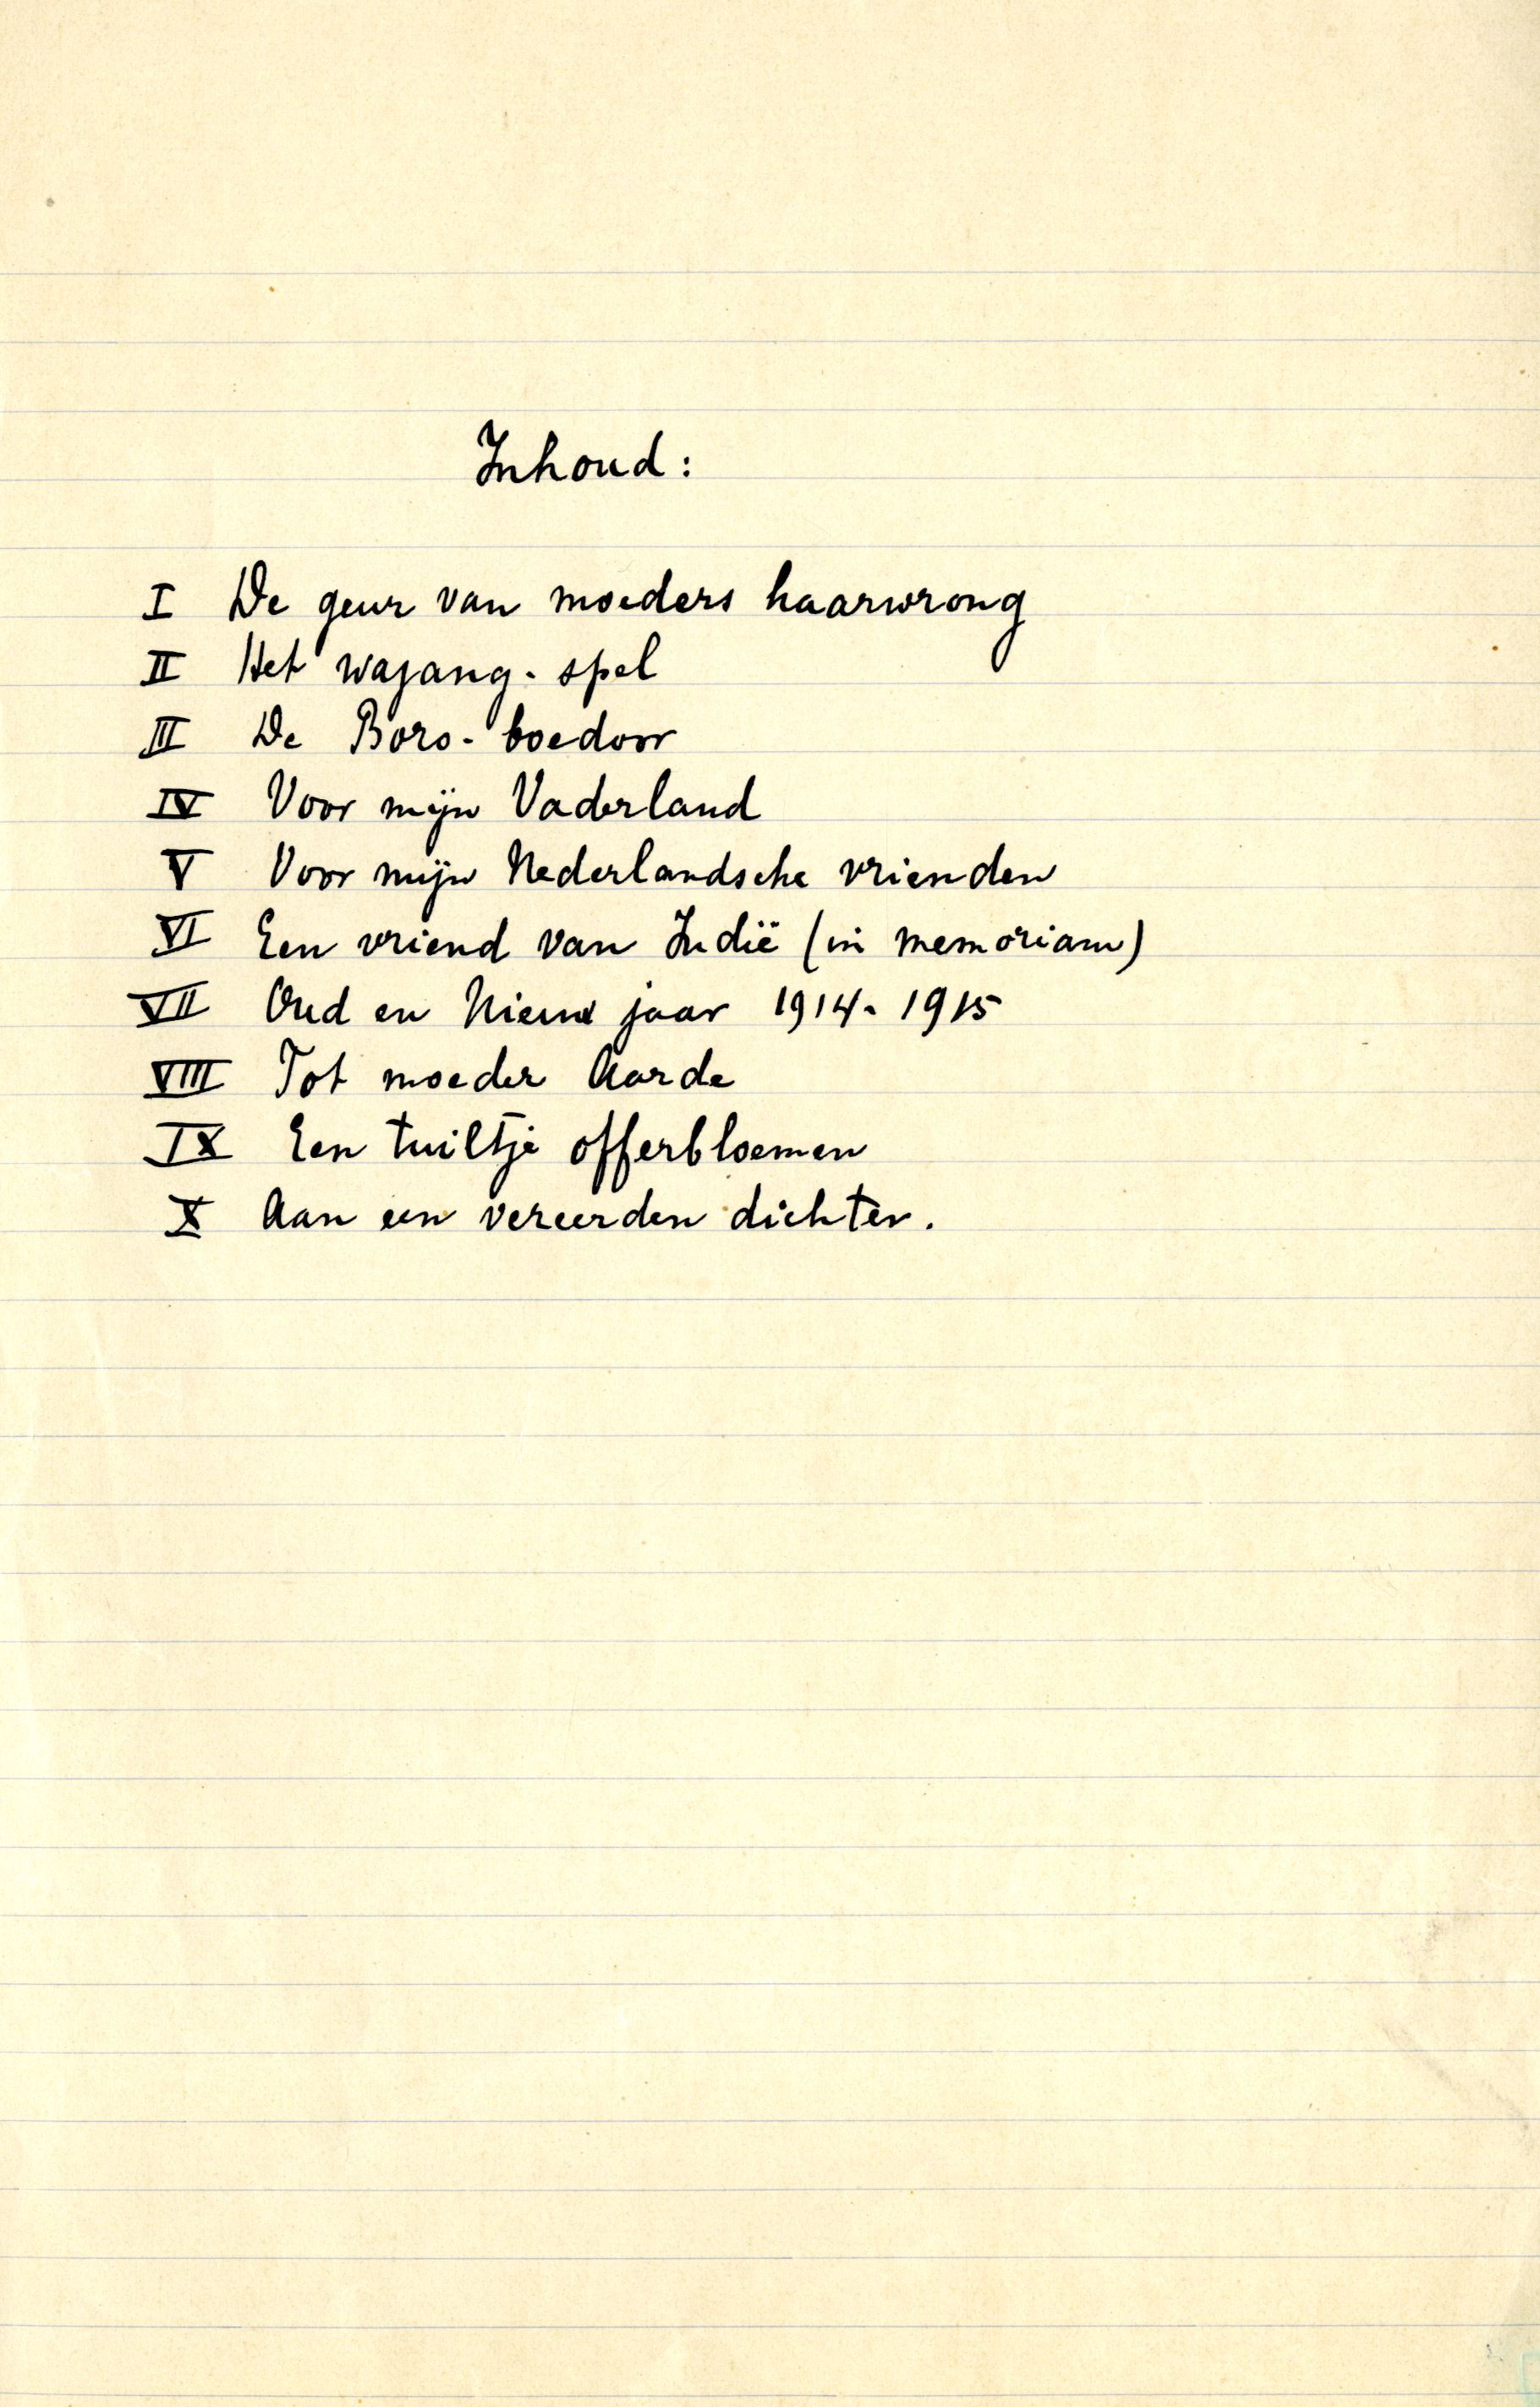 Inhoud:
I De geur van moeders haarwrong
II Het wajang-spel
III De Boro-boedoor
IV Voor mijn Vaderland
V Voor mijn Nederlandsche vrienden
VI Een vriend van Indië (in memoriam)
VII Oud en Nieuw jaar 1914-1915
VIII Tot moeder Aarde
IX Een tuiltje offerbloemen
X Aan een vereerden dichter.